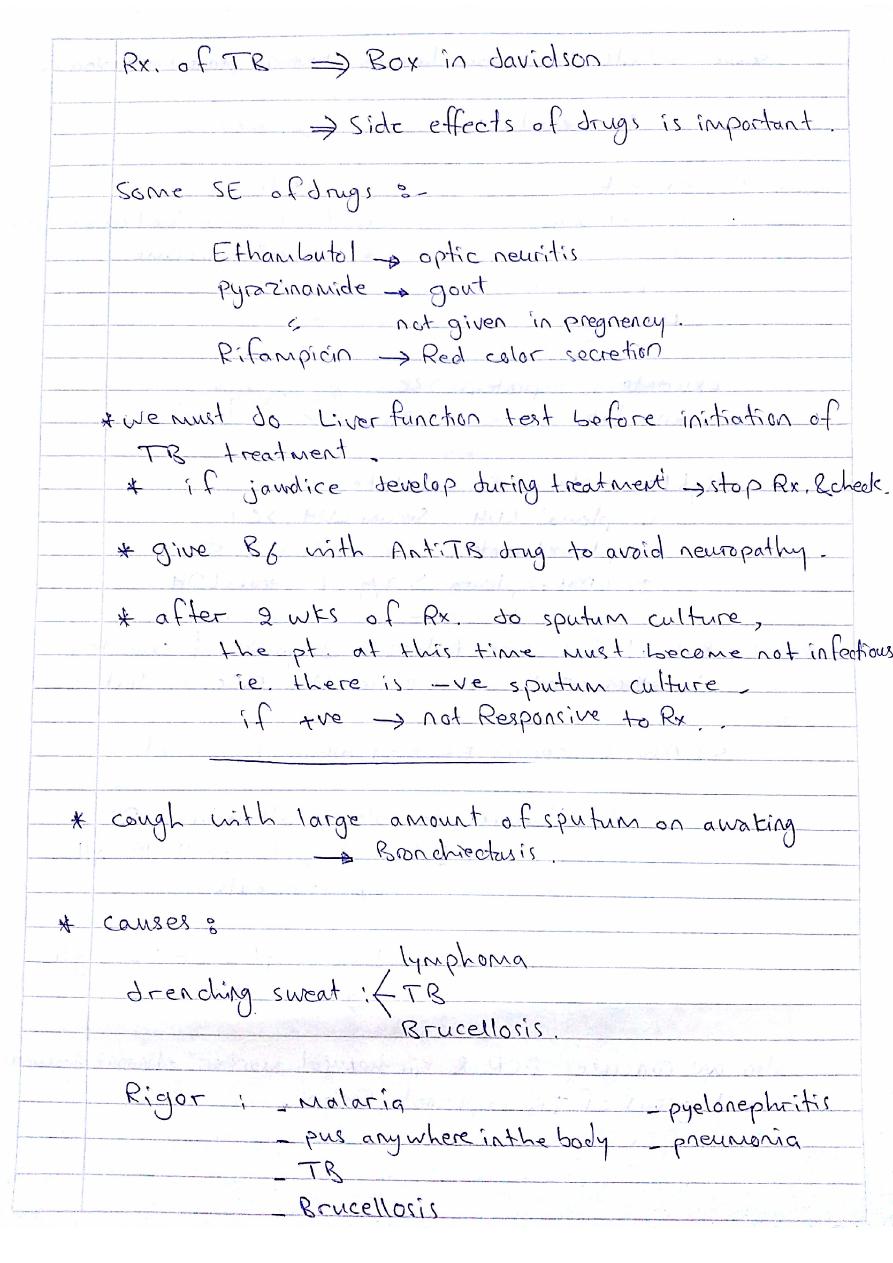 Rx. of TB ⇒ Box in davidson
⇒ Side effects of drugs is important.
Some SE of drugs :-
Ethambutol → optic neuritis
Pyrazinamide → gout
〃 not given in pregnency.
Rifampicin → Red color secretion
* we must do Liver function test before initiation of
TB treatment.
* if jawdice develop during treatment → stop Rx. & check.
* give B6 with AntiTB drug to avoid neuropathy.
* after 2 wks of Rx. do sputum culture,
the pt. at this time must become not infectious
ie. there is -ve sputum culture.
if +ve → not Responsive to Rx.
* cough with large amount of sputum on awaking
→ Bronchiectasis.
* causes :
lymphoma
drenching sweat : TB
Brucellosis.
Rigor : - Malaria - pyelonephritis
- pus anywhere in the body - pneumonia
- TB
- Brucellosis